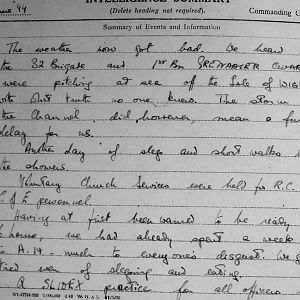 INTELLIGENCE SUMMARY
(Delete heading not required).
Commanding
une 44
Summary of Events and Information
The weather now got bad. We heard
the 32 Brigade and 1st Bn GRENADIER GUAR
were pitching at sea off the Isle of WIG
with what truth no one knew. The storm
the Channel did, however, mean a fur
delay for us.
Another day of sleep and short walks b
the showers.
Voluntary Church Services were held for R.C.
C of E personnel.
Having at first been warned to be ready
hours, we had already spent a week
in A.14 - much to everyone's disgust. We g
tired even of sleeping and eating.
A SLIDEX practice for all officers